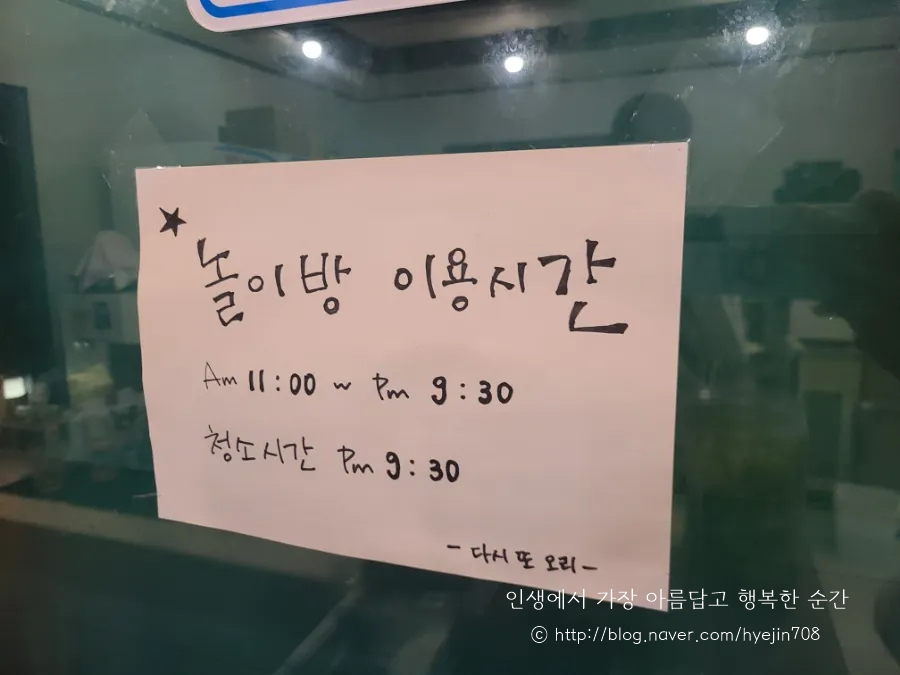 ★ 놀이방 이용시간
Am 11:00 ~ Pm 9:30
청소시간 Pm 9:30
- 다시 또 오리 -
인생에서 가장 아름답고 행복한 순간
© http://blog.naver.com/hyejin708